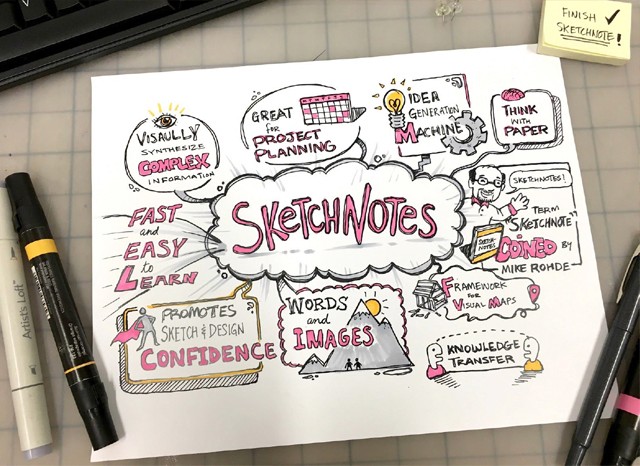 FINISH ✓
SKETCHNOTE!
VISAULLY
SYNTHESIZE
COMPLEX
INFORMATION
GREAT
FOR
PROJECT
PLANNING
IDEA
GENERATION
MACHINE
THINK
WITH
PAPER
SKETCHNOTES
SKETCHNOTES!
TERM
"SKETCHNOTE"
COINED BY
MIKE ROHDE
SKETCH-
NOTES
FAST
and
EASY
to
LEARN
PROMOTES
SKETCH & DESIGN
CONFIDENCE
WORDS
and
IMAGES
FRAMEWORK
FOR
VISUAL MAPS
KNOWLEDGE
TRANSFER
Artist's Loft